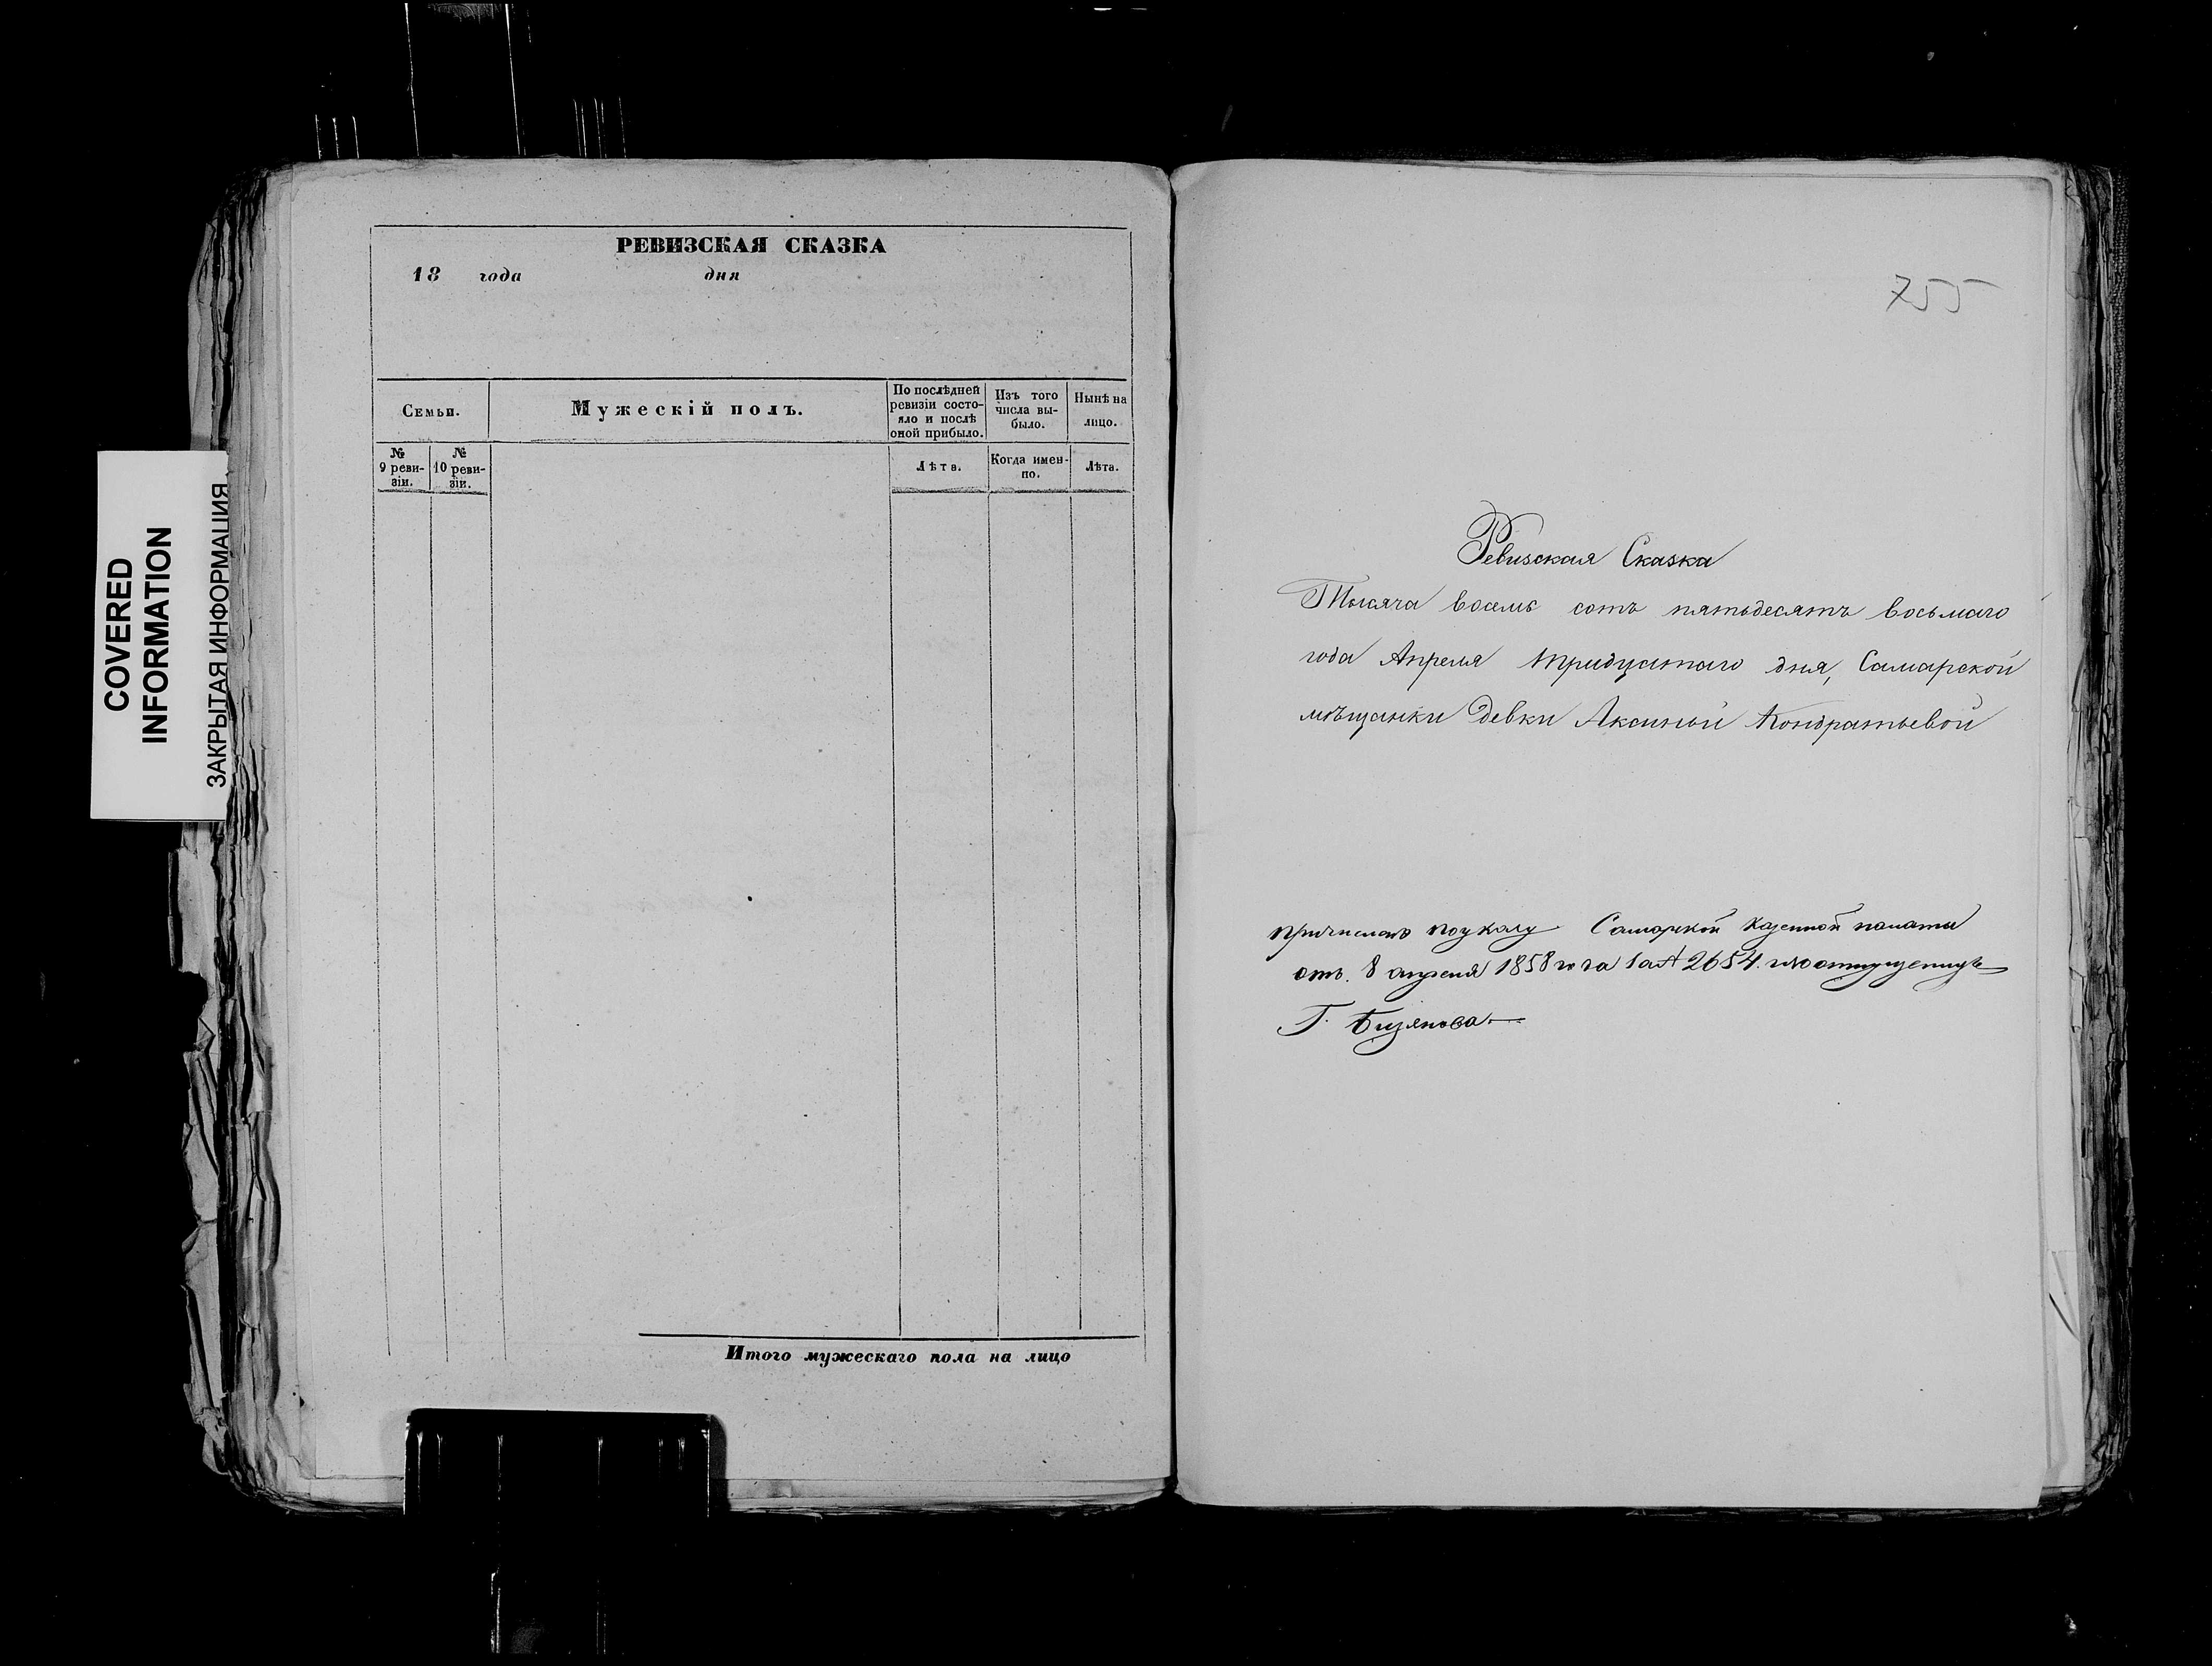 РЕВИЗСКАЯ СКАЗКА
18 года дня
Семьи.
Мужескій полъ.
По послѣдней ревизіи состо-
яло и послѣ оной прибыло.
Изъ того числа вы-
было.
Нынѣ на лицо.
№ 9 реви-
зіи.
№ 10 реви-
зіи.
Лѣта.
Когда имен-
но.
Лѣта.
Итого мужескаго пола на лицо
COVERED
INFORMATION
ЗАКРЫТАЯ ИНФОРМАЦИЯ
755
Ревизская Сказка
Тысяча восемь сотъ пятьдесятъ восьмаго
года Апреля тридцатаго дня, Самарской
мѣщанки девки Аксиньи Кондратьевой
по указу Самарской казенной палаты
отъ 8 апреля 1858 года за № 2654.
Г.